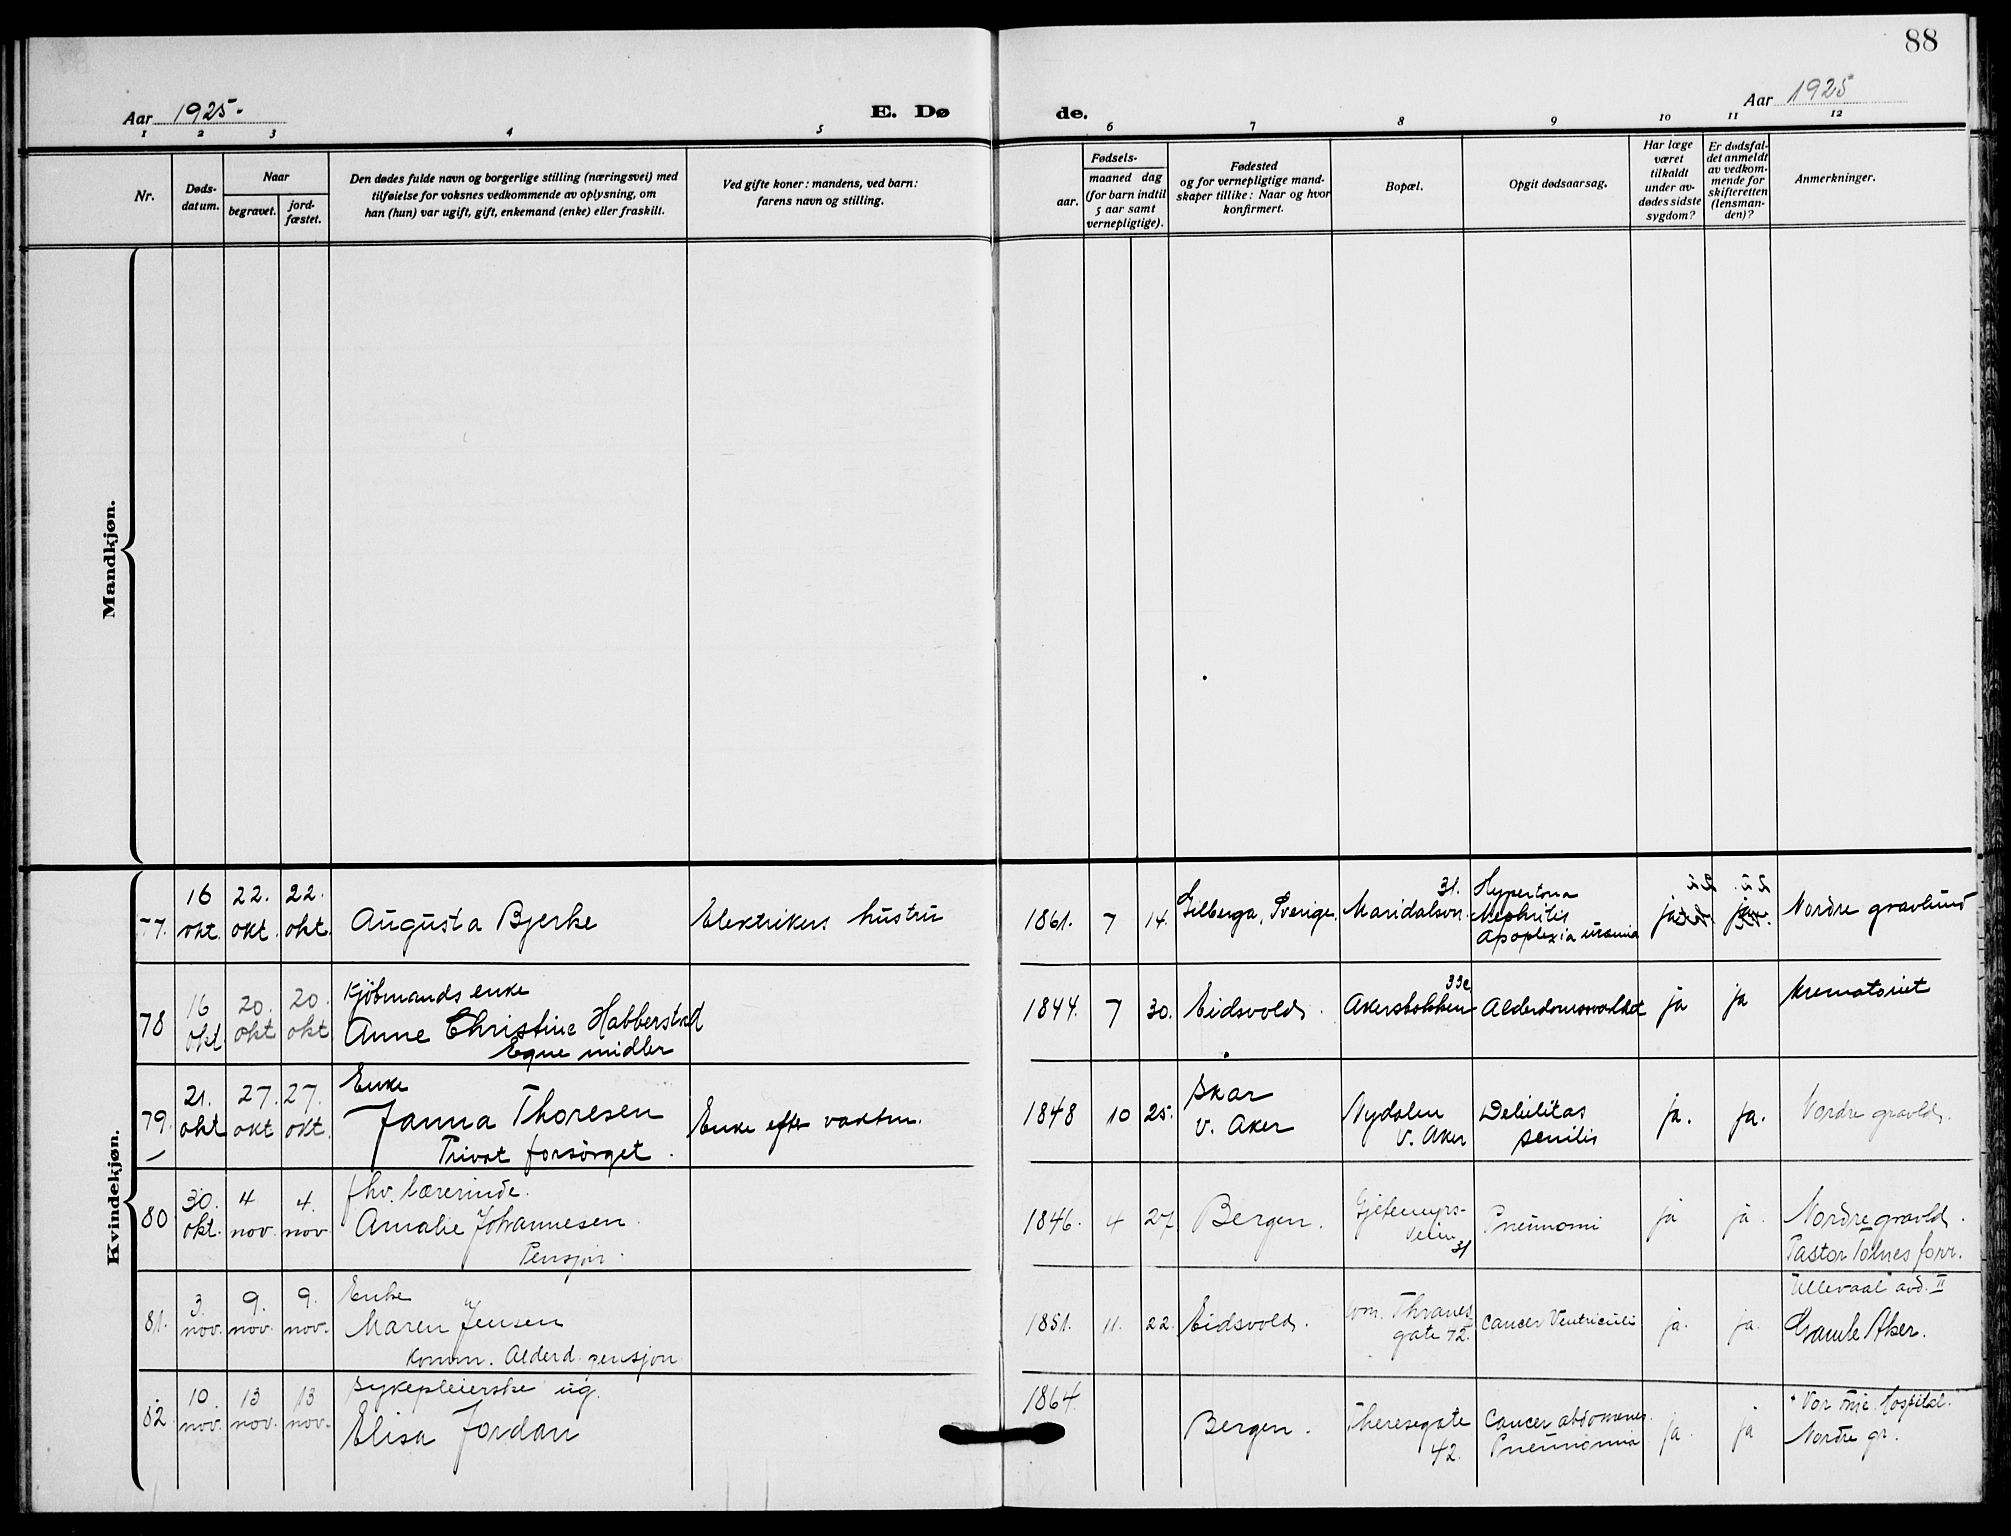 88
Aar 1925.
E. Dø
de.
Aar 1925
1 2 3 4 5
6 7 8 9 10 11 12
Nr.
Døds-
datum.
Naar
begravet.
jord-
fæstet.
Den dødes fulde navn og borgerlige stilling (næringsvei) med
tilføielse for voksnes vedkommende av oplysning, om
han (hun) var ugift, gift, enkemand (enke) eller fraskilt.
Ved gifte koner: mandens, ved barn:
farens navn og stilling.
Fødsels-
aar.
maaned dag
(for barn indtil
5 aar samt
vernepligtige).
Fødested
og for vernepligtige mand-
skaper tillike: Naar og hvor
konfirmert.
Bopæl.
Opgit dødsaarsag.
Har læge
været
tilkaldt
under av-
dødes sidste
sygdom?
Er dødsfal-
det anmeldt
av vedkom-
mende for
skifteretten
(lensman-
den)?
Anmerkninger.
Mandkjøn.
Kvindekjøn.
77. 16 okt. 22. okt. 22. okt.
Augusta Bjerke
Elektrikers hustru
1861. 7 14.
Gilberga, Sverige.
Maridalsvn. 31.
Hypertona
Nephritis
Apoplexia uræmia
ja
ja
Nordre gravlund
78 16 okt. 20. okt 20. okt
Kjöbmands enke
Anne Christine Habberstad
Egne midler
1844. 7 30.
Eidsvold.
Akersbakken 33c
Alderdomssvakhet
ja
ja
Krematoriet
79. 21. okt 27. okt 27. okt.
Enke
Janna Thoresen
Privat forsörget.
Enke efter vaktm.
1848 10 25.
Skar
v. Aker
Nydalen
v. Aker
Debilitas
senilis
ja.
ja.
Nordre gravld.
80 30. okt. 4 nov. 4. nov
fhv. lærerinde.
Amalie Johannesen.
Pensjon.
1846. 4 27
Bergen.
Gjetemyrs-
veien
31
Pneumoni
ja
ja.
Nordre gravld.
Pastor Tönes forr.
81. 3. nov. 9. nov. 9. nov.
Enke
Maren Jensen
Komm. Alderd. pensjon
1851. 11. 22.
Eidsvold.
Wm. Thranes
gate 72.
Cancer Ventriculi
ja.
ja.
Ullevaal avd. II
Gamle Aker.
82 10. nov. 13 nov. 13 nov.
sykepleierske ug.
Elisa Jordan
1864.
Bergen.
Theresegate
42.
Cancer abdomenes.
Pneumonia
ja.
ja
Vor Frue Hospital.
Nordre gr.